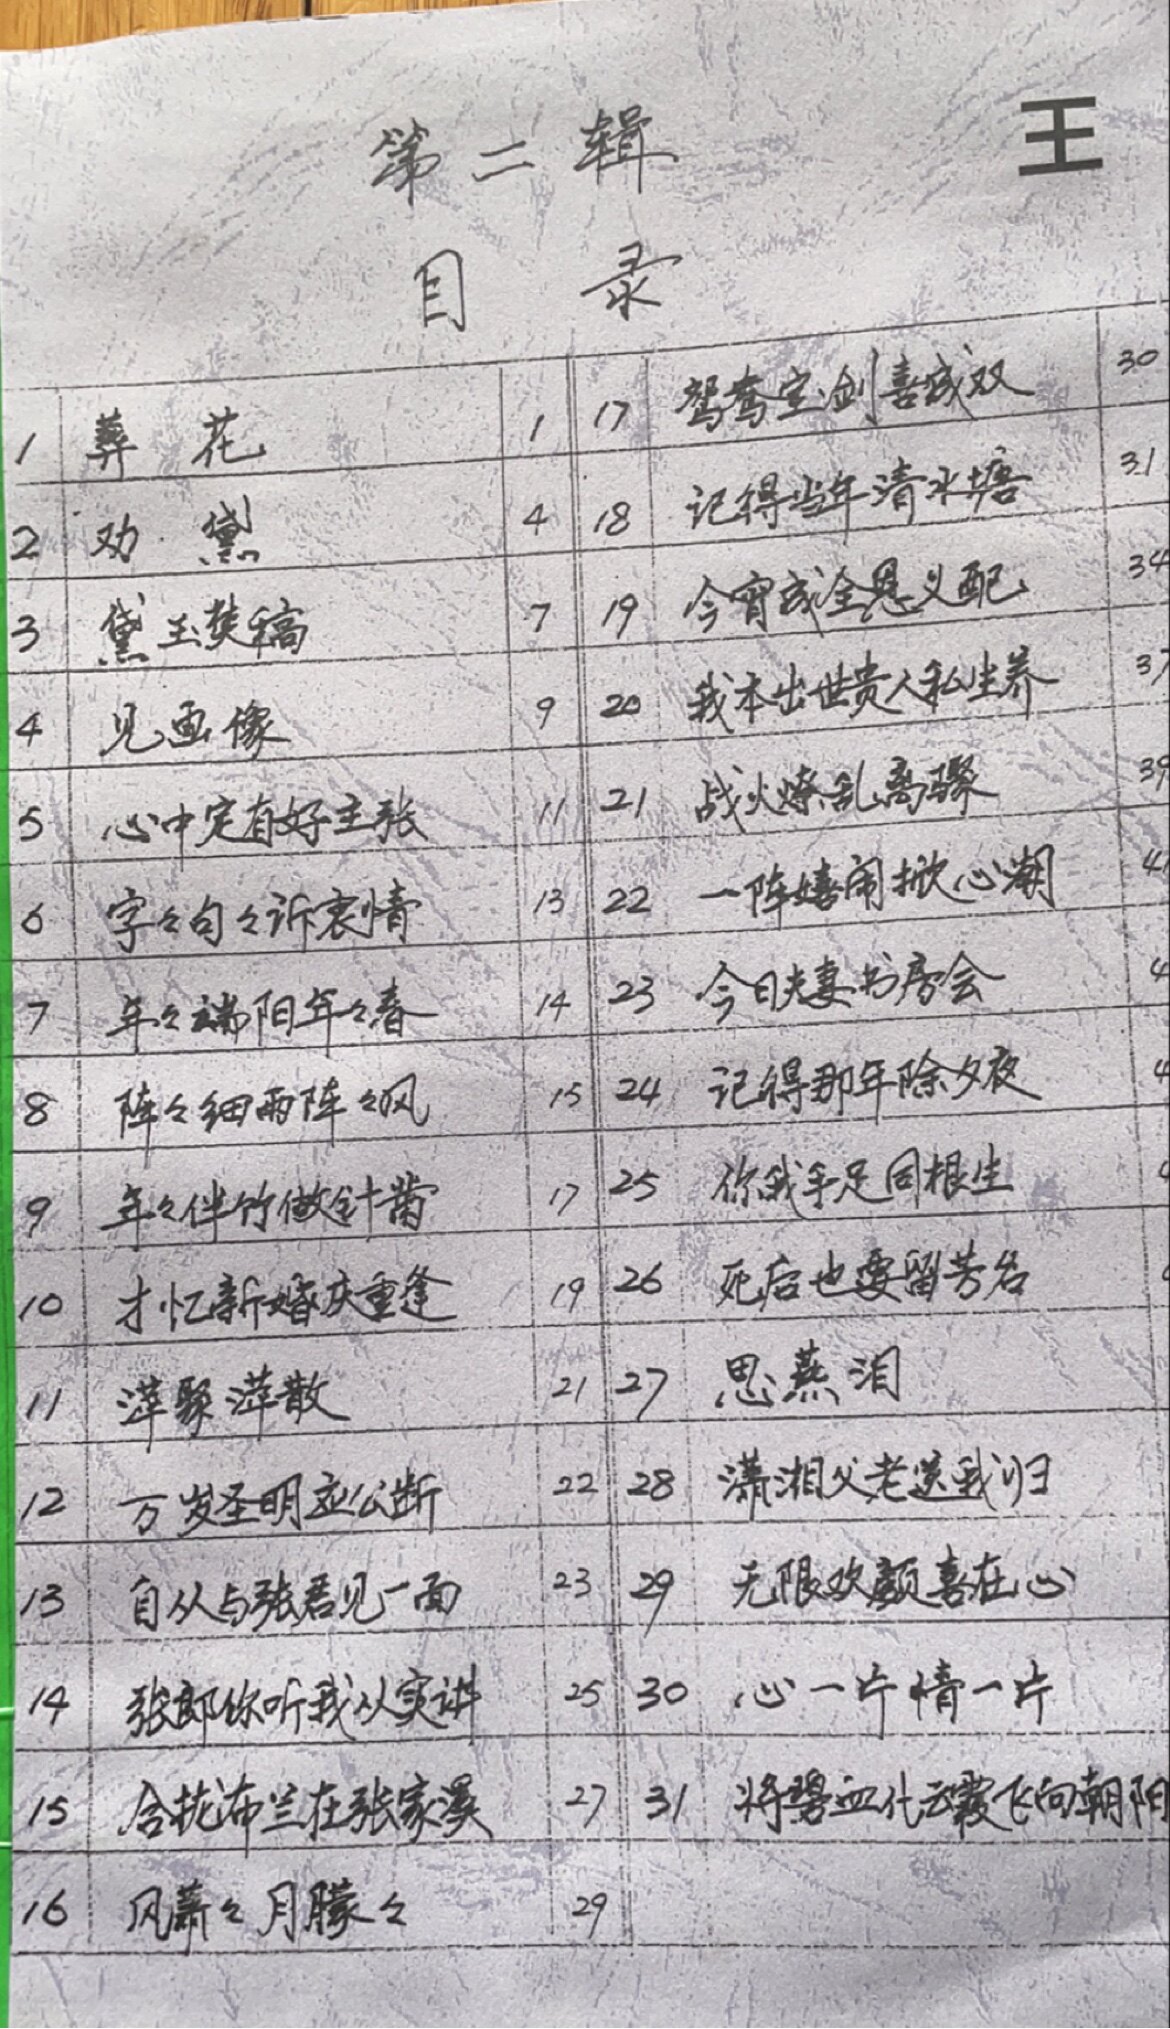 第二辑
王
目录
1 葬花 1
2 劝黛 4
3 黛玉焚稿 7
4 见画像 9
5 心中定有好主张 11
6 字々句々诉衷情 13
7 年々端阳年々春 14
8 阵々细雨阵々风 15
9 年々伴竹做针黹 17
10 才忆新婚庆重逢 19
11 萍聚萍散 21
12 万岁圣明应公断 22
13 自从与张君见一面 23
14 张郎你听我从实讲 25
15 布兰在张家溪 27
16 风萧々月朦々 29
17 鸳鸯宝剑喜成双 30
18 记得当年清水塘 31
19 今宵成全恩义配 34
20 我本出世贵人私生养 37
21 战火燎乱离骤 39
22 一阵嬉闹掀心潮
23 今日夫妻书房会
24 记得那年除夕夜
25 你我手足同根生
26 死后也要留芳名
27 思燕泪
28 潇湘父老送我归
29 无限欢颜喜在心
30 心一片情一片
31 将碧血化云霞飞向朝阳